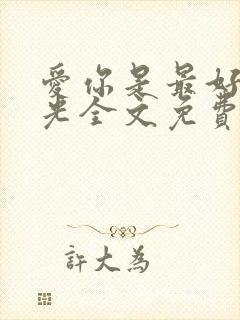 愛你是最好
光全文免費
許大為